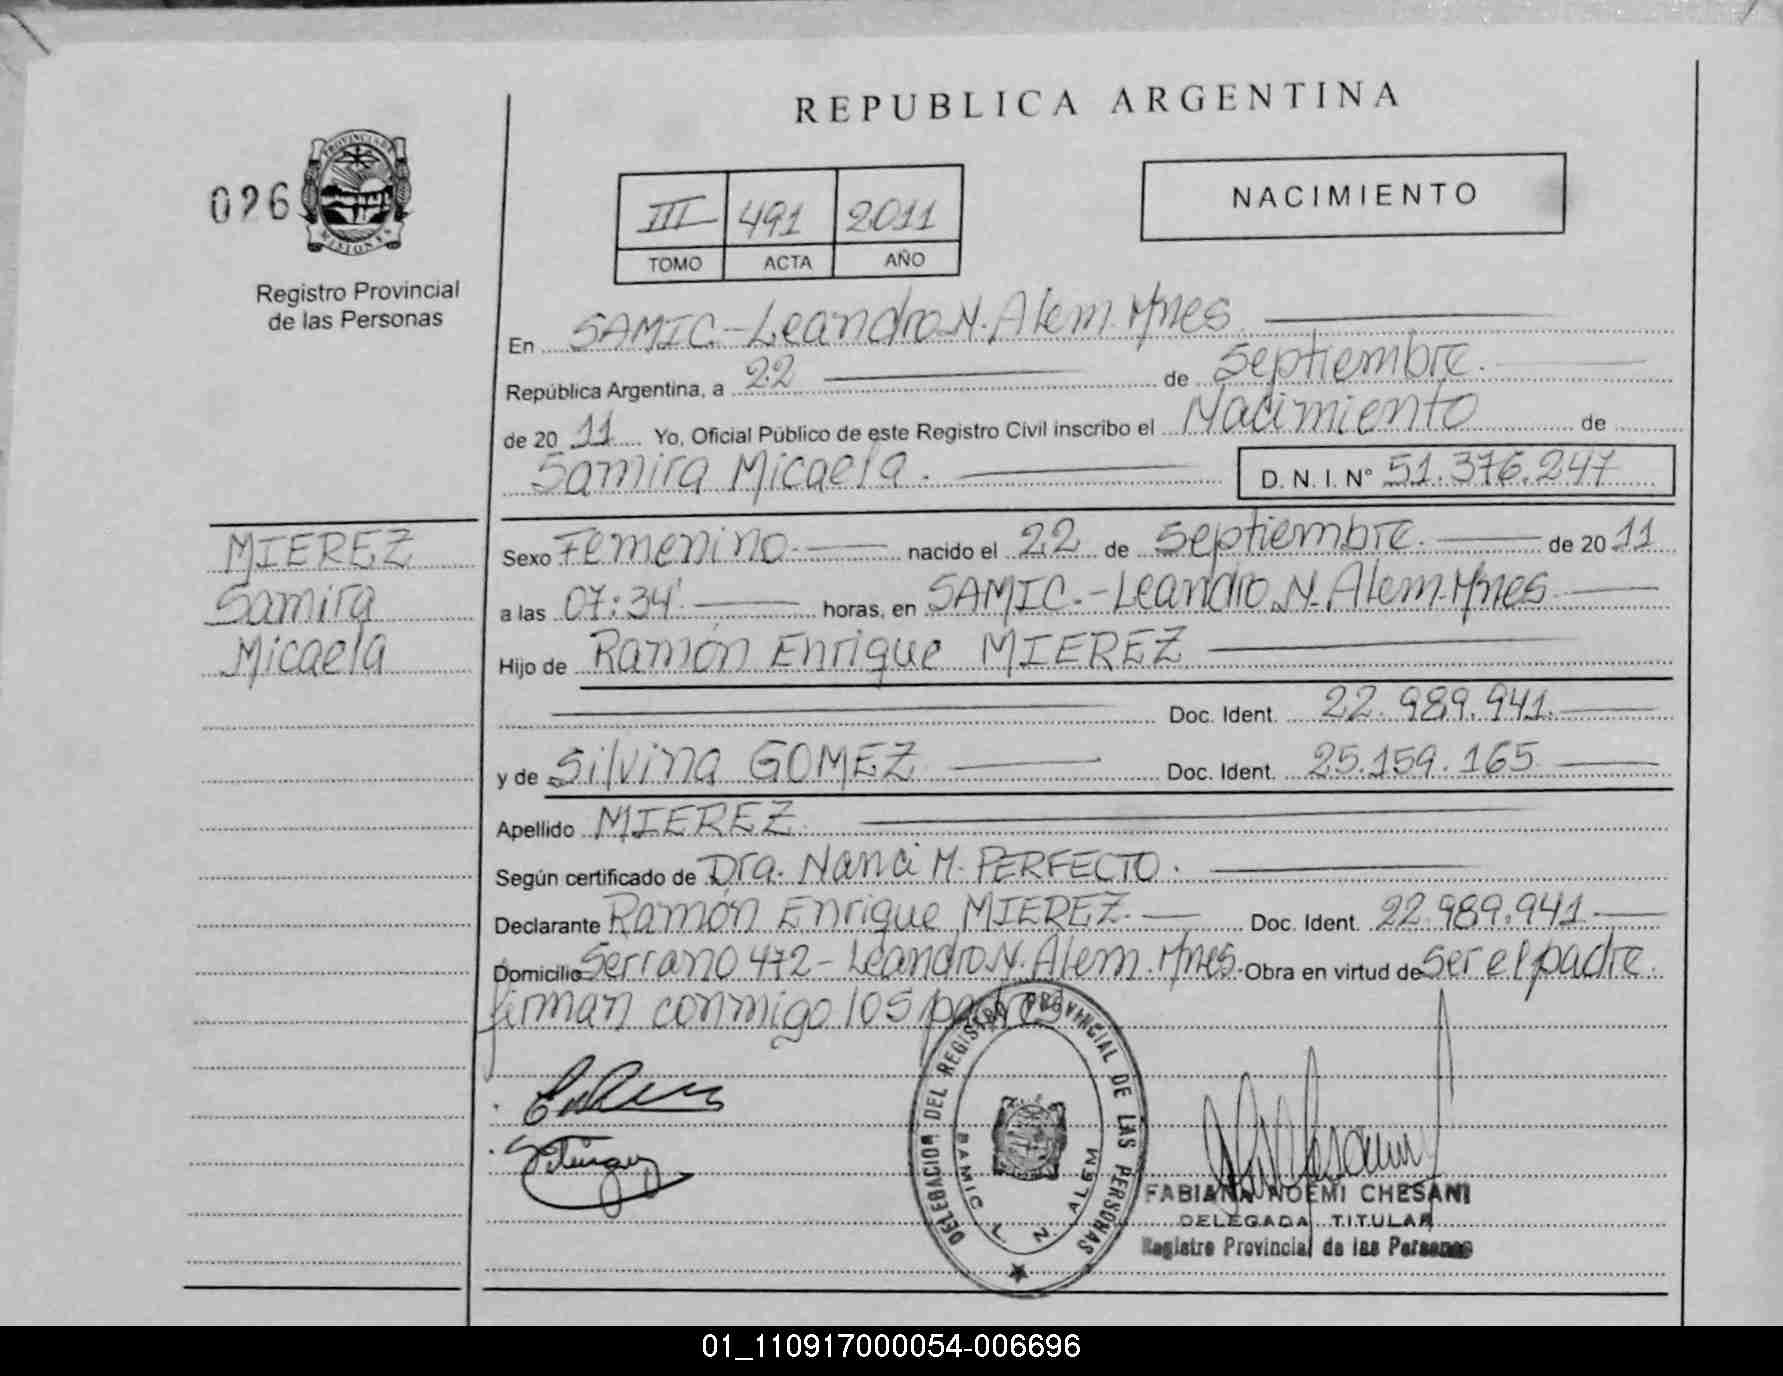 REPUBLICA ARGENTINA
026
PROVINCIA DE
MISIONES
Registro Provincial
de las Personas
III 491 2011
TOMO ACTA AÑO
NACIMIENTO
En SAMIC.-Leandro N. Alem. Mnes
República Argentina, a 22 de Septiembre.
de 20 11 Yo, Oficial Público de este Registro Civil inscribo el Nacimiento de
Samira Micaela. D. N. I. Nº 51.376.247
MIEREZ
Samira
Micaela
Sexo Femenino.- nacido el 22 de Septiembre. de 20 11
a las 07:34' horas, en SAMIC.-Leandro N. Alem.Mnes
Hijo de Ramón Enrique MIEREZ
Doc. Ident. 22.989.941.
y de Silvina GOMEZ Doc. Ident. 25.159.165
Apellido MIEREZ
Según certificado de Dra. Nanci M. PERFECTO.
Declarante Ramón Enrique MIEREZ.- Doc. Ident. 22.989.941.
Domicilio Serrano 472-Leandro N. Alem. Mnes. Obra en virtud de Ser el padre.
firman conmigo los padres
DELEGACION DEL REGISTRO PROVINCIAL DE LAS PERSONAS
SAMIC L. N. ALEM
FABIANA NOEMI CHESANI
DELEGADA TITULAR
Registro Provincial de las Personas
01_110917000054-006696